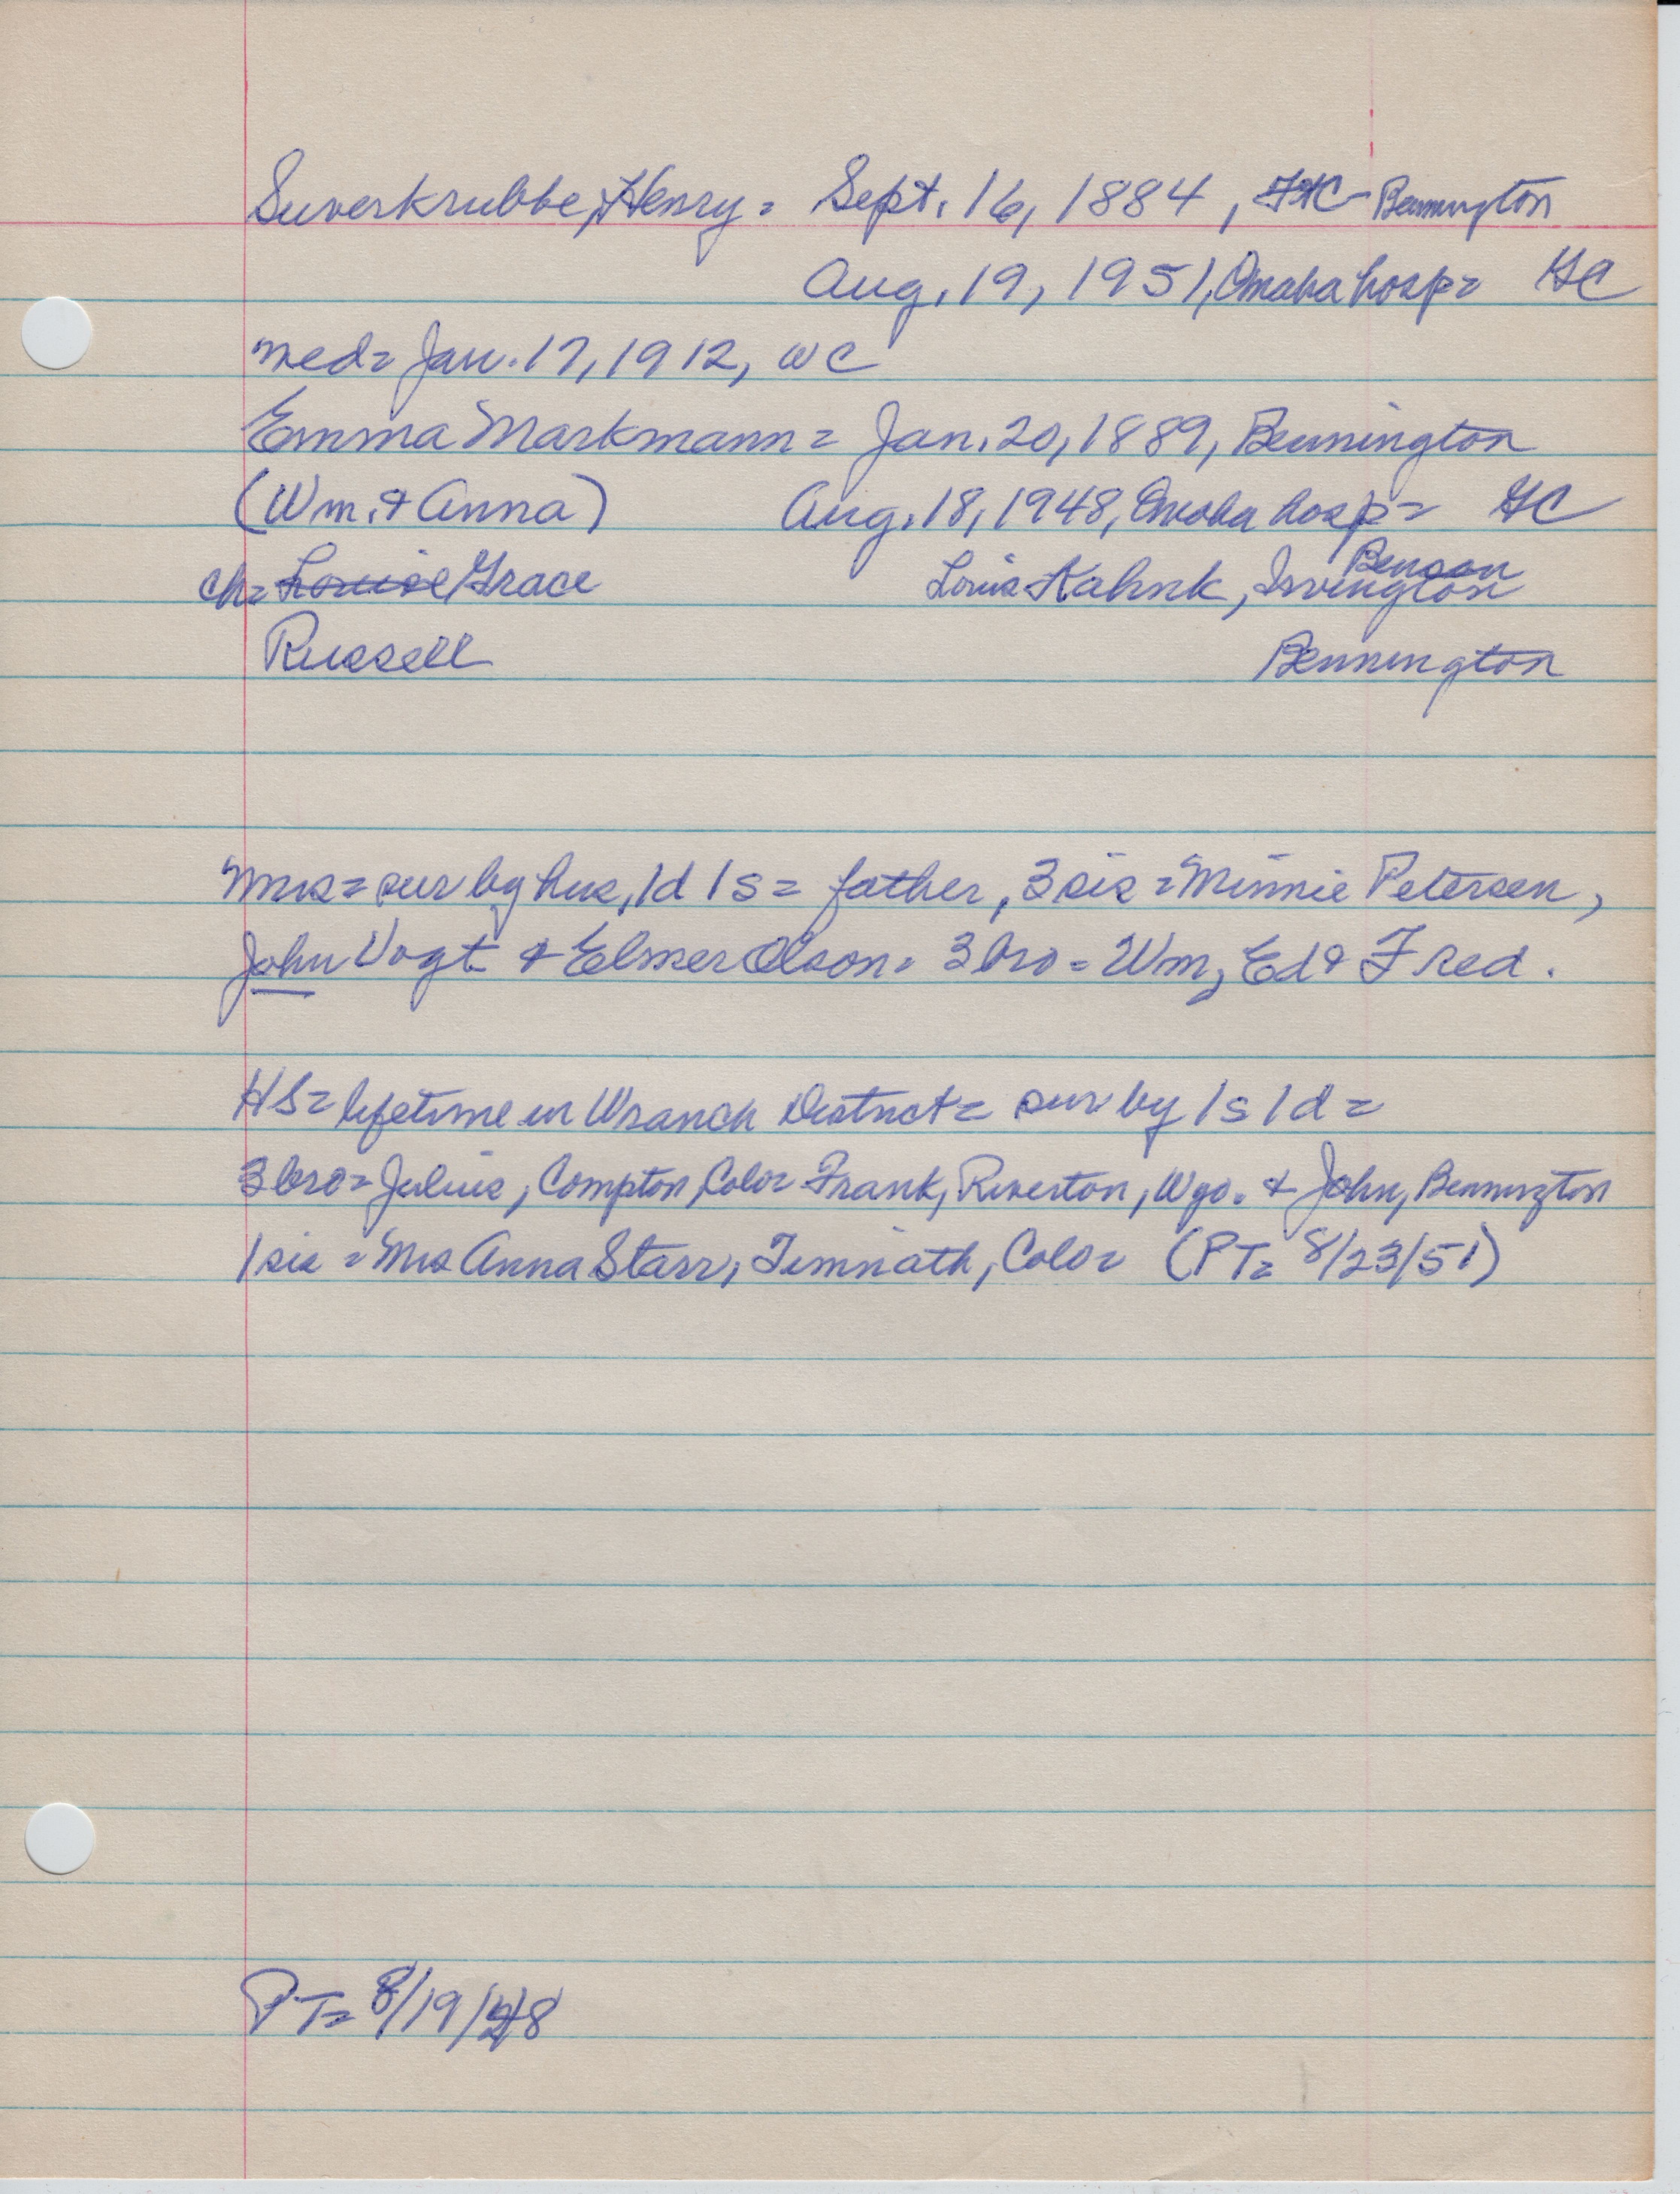 Suverkrubbe, Henry = Sept. 16, 1884, Bennington
Aug. 19, 1951, Omaha hosp = GC
med = Jan. 17, 1912, WC
Emma Markmann = Jan. 20, 1889, Bennington
(Wm. & Anna) Aug. 18, 1948, Omaha hosp = GC
Benson
ch = Louise Grace Louis Kahnk, Irvington
Russell Bennington
Mrs = sur by hus, 1d 1s = father, 3 sis = Minnie Petersen,
John Vogt & Elmer Olson = 3 bro = Wm, Ed & Fred.
HS = lifetime in Wranch District = sur by 1s 1d =
3 bro = Julius, Compton, Colo = Frank, Riverton, Wyo. & John, Bennington
1 sis = Mrs Anna Starr, Timnath, Colo = (PT = 8/23/51)
PT = 8/19/48